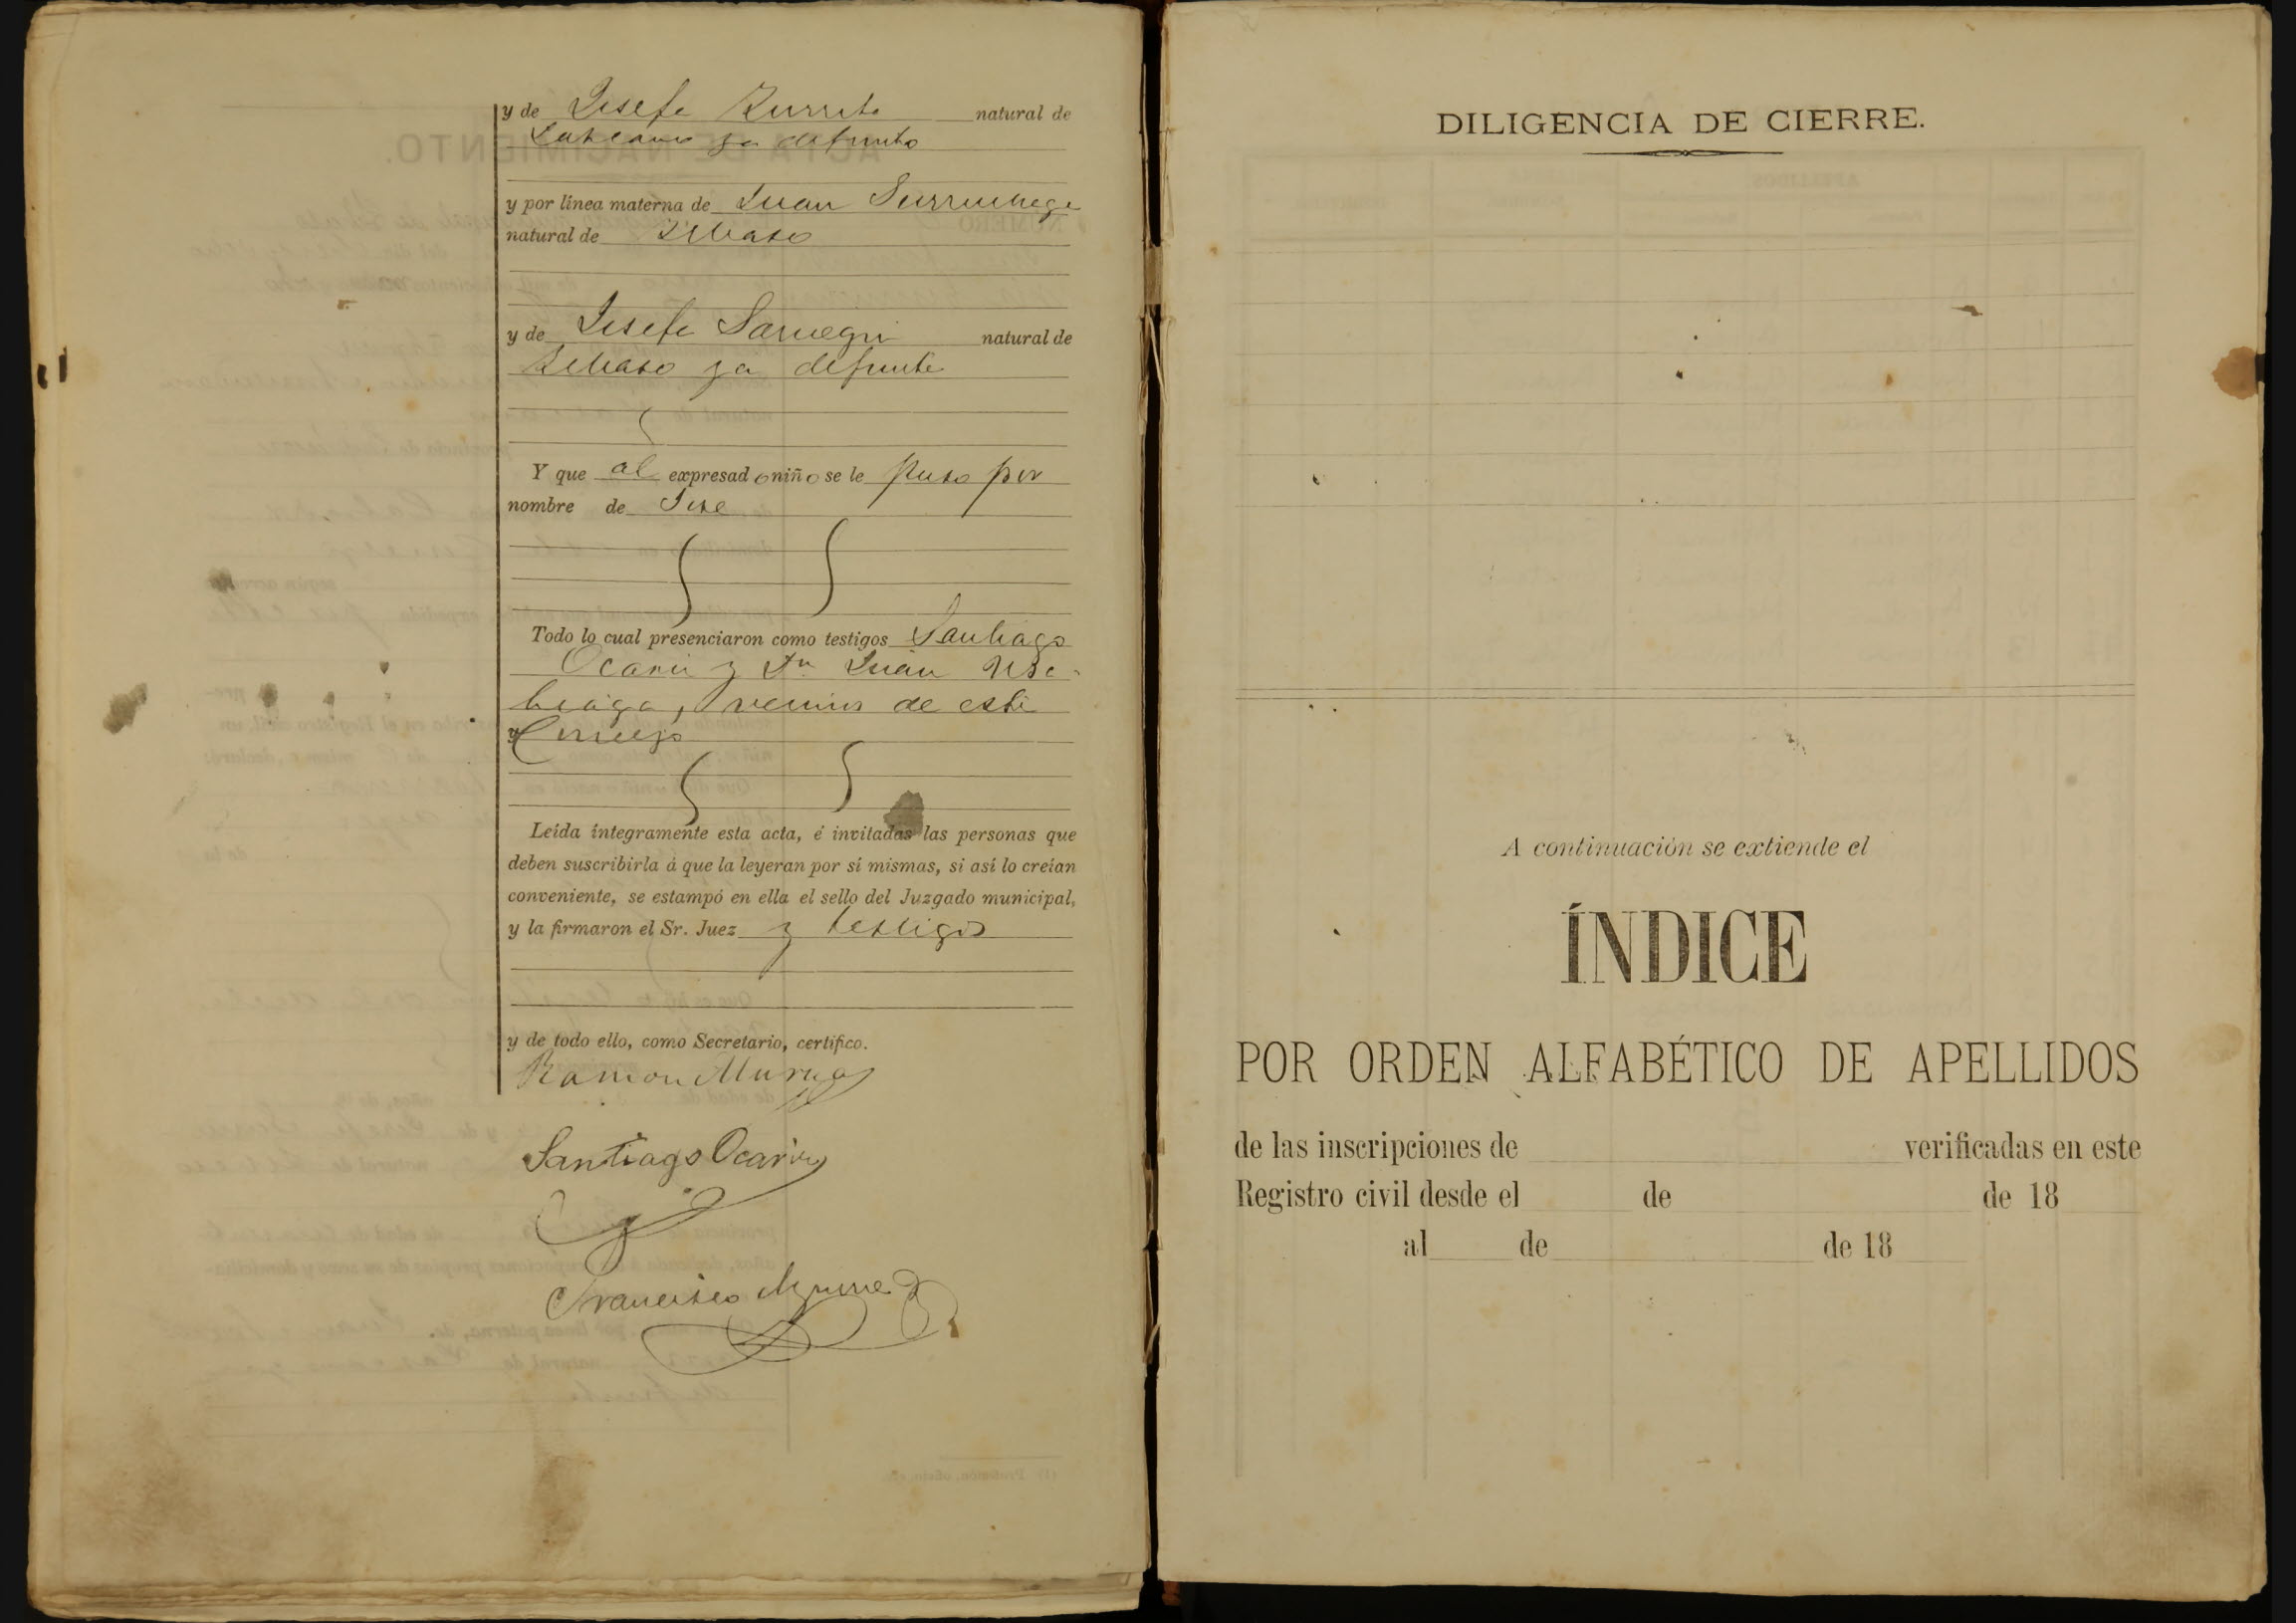 y de Josefa Zurrute natural de
Lazcano ya defunto
y por línea materna de Juan Surrunegi
natural de
y de Josefa natural de
ya defunte
Y que al expresado niño se le puso por
nombre de Jose
Todo lo cual presenciaron como testigos Santiago
Ocariz y Dn Juan Usa-
biaga, vecinos de este
Concejo
Leída íntegramente esta acta, é invitadas las personas que
deben suscribirla á que la leyeran por sí mismas, si así lo creían
conveniente, se estampó en ella el sello del Juzgado municipal,
y la firmaron el Sr. Juez y testigos
y de todo ello, como Secretario, certifico.
Ramon Murua
Santiago Ocariz
Francisco Aguirre
DILIGENCIA DE CIERRE.
A continuación se extiende el
ÍNDICE
POR ORDEN ALFABÉTICO DE APELLIDOS
de las inscripciones de verificadas en este
Registro civil desde el de de 18
al de de 18